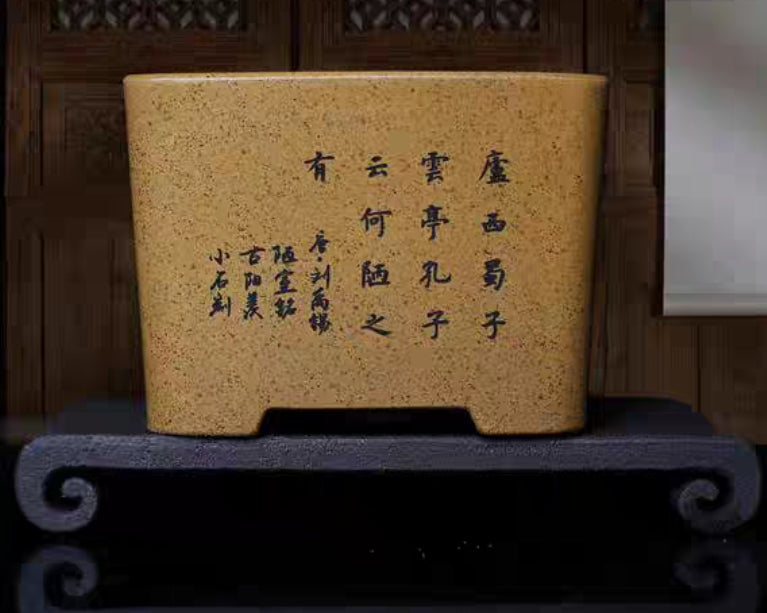 廬西蜀子
雲亭孔子
云何陋之
有
唐·刘禹锡
陋室銘
古阳羡
小石刻